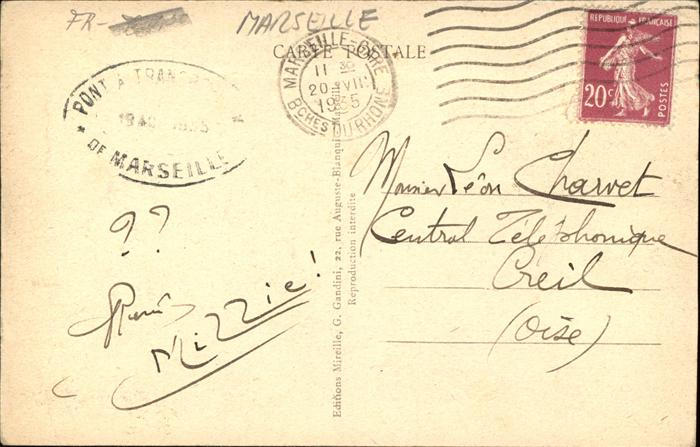 FR-
MARSEILLE
CARTE POSTALE
MARSEILLE-GARE
11 30
20 VII
1935
BCHES DU RHONE
REPUBLIQUE FRANÇAISE
20c
POSTES
PONT A TRANSB
DE MARSEILLE
Monsieur Léon Charvet
Central Téléphonique
Creil
(Oise)
??
Mizzie!
Editions Mireille, G. Gandini, 22, rue Auguste-Blanqui, Marseille
Reproduction interdite